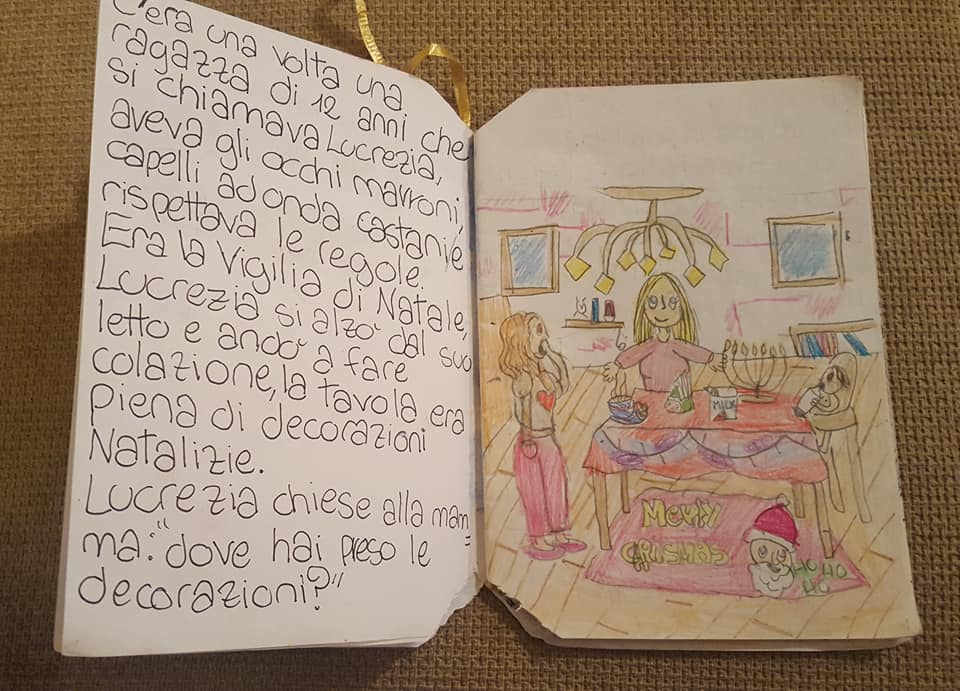 C'era una volta una
ragazza di 12 anni che
si chiamava Lucrezia,
aveva gli occhi marroni,
capelli ad onda castani e
rispettava le regole.
Era la Vigilia di Natale,
Lucrezia si alzò dal suo
letto e andò a fare
colazione, la tavola era
piena di decorazioni
Natalizie.
Lucrezia chiese alla mam=
ma: "dove hai preso le
decorazioni?"
MILK
Merry
CRISMAS
HO HO
HO